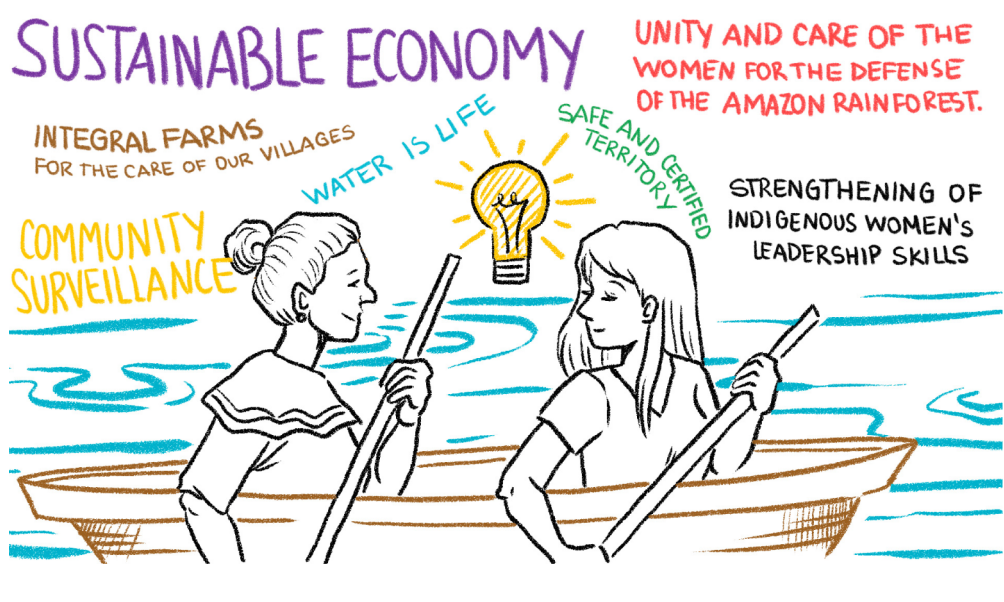 SUSTAINABLE ECONOMY
UNITY AND CARE OF THE
WOMEN FOR THE DEFENSE
OF THE AMAZON RAINFOREST.
INTEGRAL FARMS
FOR THE CARE OF OUR VILLAGES
WATER IS LIFE
SAFE AND CERTIFIED
TERRITORY
STRENGTHENING OF
INDIGENOUS WOMEN'S
LEADERSHIP SKILLS
COMMUNITY
SURVEILLANCE